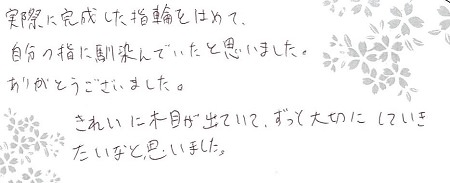 実際に完成した指輪をはめて、
自分の指に馴染んでいたと思いました。
ありがとうございました。
きれいに木目が出ていて、ずっと大切にしていき
たいなと思いました。